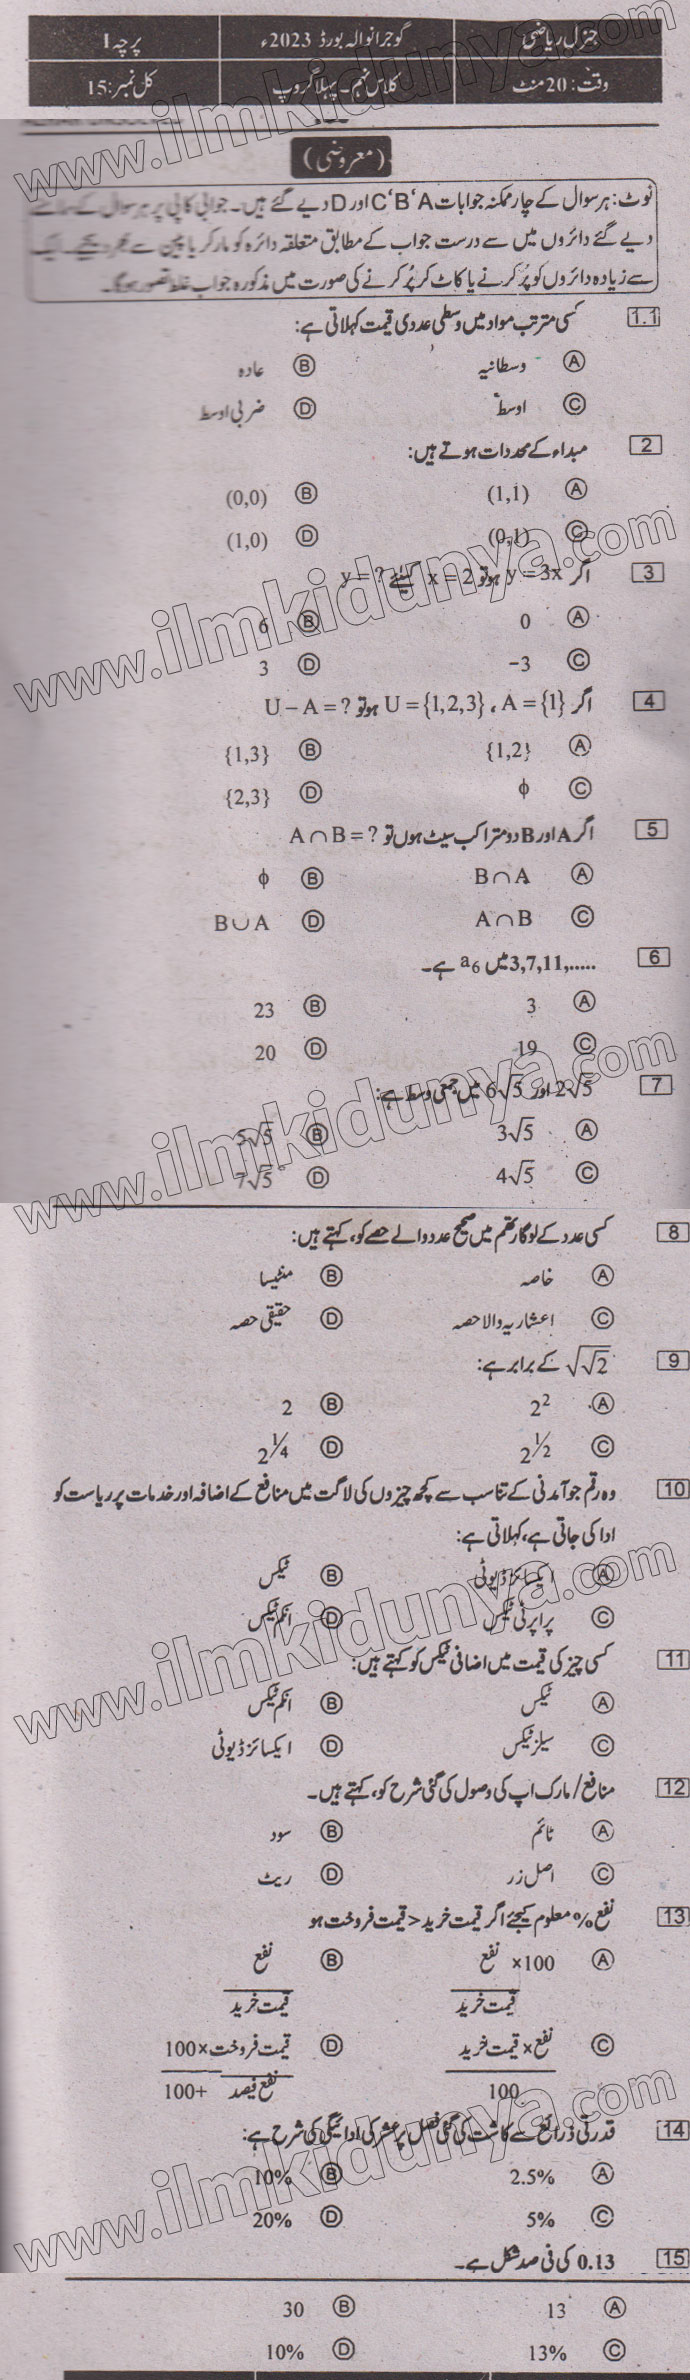 جنرل ریاضی گوجرانوالہ بورڈ 2023ء پرچہ I
وقت: 20 منٹ کلاس نہم - پہلا گروپ کل نمبر: 15
(معروضی)
نوٹ: ہر سوال کے چار ممکنہ جوابات A‘B‘C اور D دیے گئے ہیں۔ جوابی کاپی پر ہر سوال کے سامنے
دیے گئے دائروں میں سے درست جواب کے مطابق متعلقہ دائرہ کو مارکر یا پین سے بھر دیجیے۔ ایک
سے زیادہ دائروں کو پُر کرنے یا کاٹ کر پُر کرنے کی صورت میں مذکورہ جواب غلط تصور ہوگا۔
1.1 کسی مرتب مواد میں وسطی عددی قیمت کہلاتی ہے:
A وسطانیہ B عادہ
C اوسط D ضربی اوسط
2 مبداء کے محددات ہوتے ہیں:
A (1,1) B (0,0)
C (0,1) D (1,0)
3 اگر y = 3x ہو تو x = 2 کیلئے y = ?
A 0 B 6
C -3 D 3
4 اگر A = {1} ، U = {1,2,3} ہو تو U – A = ?
A {1,2} B {1,3}
C ϕ D {2,3}
5 اگر A اور B دو متراکب سیٹ ہوں تو A ∩ B = ?
A B ∩ A B ϕ
C A ∩ B D B ∪ A
6 3,7,11,..... میں a6 ہے۔
A 3 B 23
C 19 D 20
7 2√5 اور 6√5 میں جمعی وسط ہے:
A 3√5 B 5√5
C 4√5 D 7√5
8 کسی عدد کے لوگارتھم میں صحیح عدد والے حصے کو، کہتے ہیں:
A خاصہ B منٹیسا
C اعشاریہ والا حصہ D حقیقی حصہ
9 √√2 کے برابر ہے:
A 2² B 2
C 2^1/2 D 2^1/4
10 وہ رقم جو آمدنی کے تناسب سے کچھ چیزوں کی لاگت میں منافع کے اضافہ اور خدمات پر ریاست کو
ادا کی جاتی ہے، کہلاتی ہے:
A ایکسائز ڈیوٹی B ٹیکس
C پراپرٹی ٹیکس D انکم ٹیکس
11 کسی چیز کی قیمت میں اضافی ٹیکس کو کہتے ہیں:
A ٹیکس B انکم ٹیکس
C سیلز ٹیکس D ایکسائز ڈیوٹی
12 منافع/مارک اپ کی وصول کی گئی شرح کو، کہتے ہیں۔
A ٹائم B سود
C اصل زر D ریٹ
13 نفع% معلوم کیجئے اگر قیمت خرید < قیمت فروخت ہو
A نفع ×100 B نفع
قیمت خرید قیمت خرید
C نفع × قیمت خرید D قیمت فروخت ×100
100 نفع فیصد +100
14 قدرتی ذرائع سے کاشت کی گئی فصل پر عشر کی ادائیگی کی شرح ہے:
A 2.5% B 10%
C 5% D 20%
15 0.13 کی فی صد شکل ہے۔
A 13 B 30
C 13% D 10%
www.ilmkidunya.com
www.ilmkidunya.com
www.ilmkidunya.com
www.ilmkidunya.com
www.ilmkidunya.com